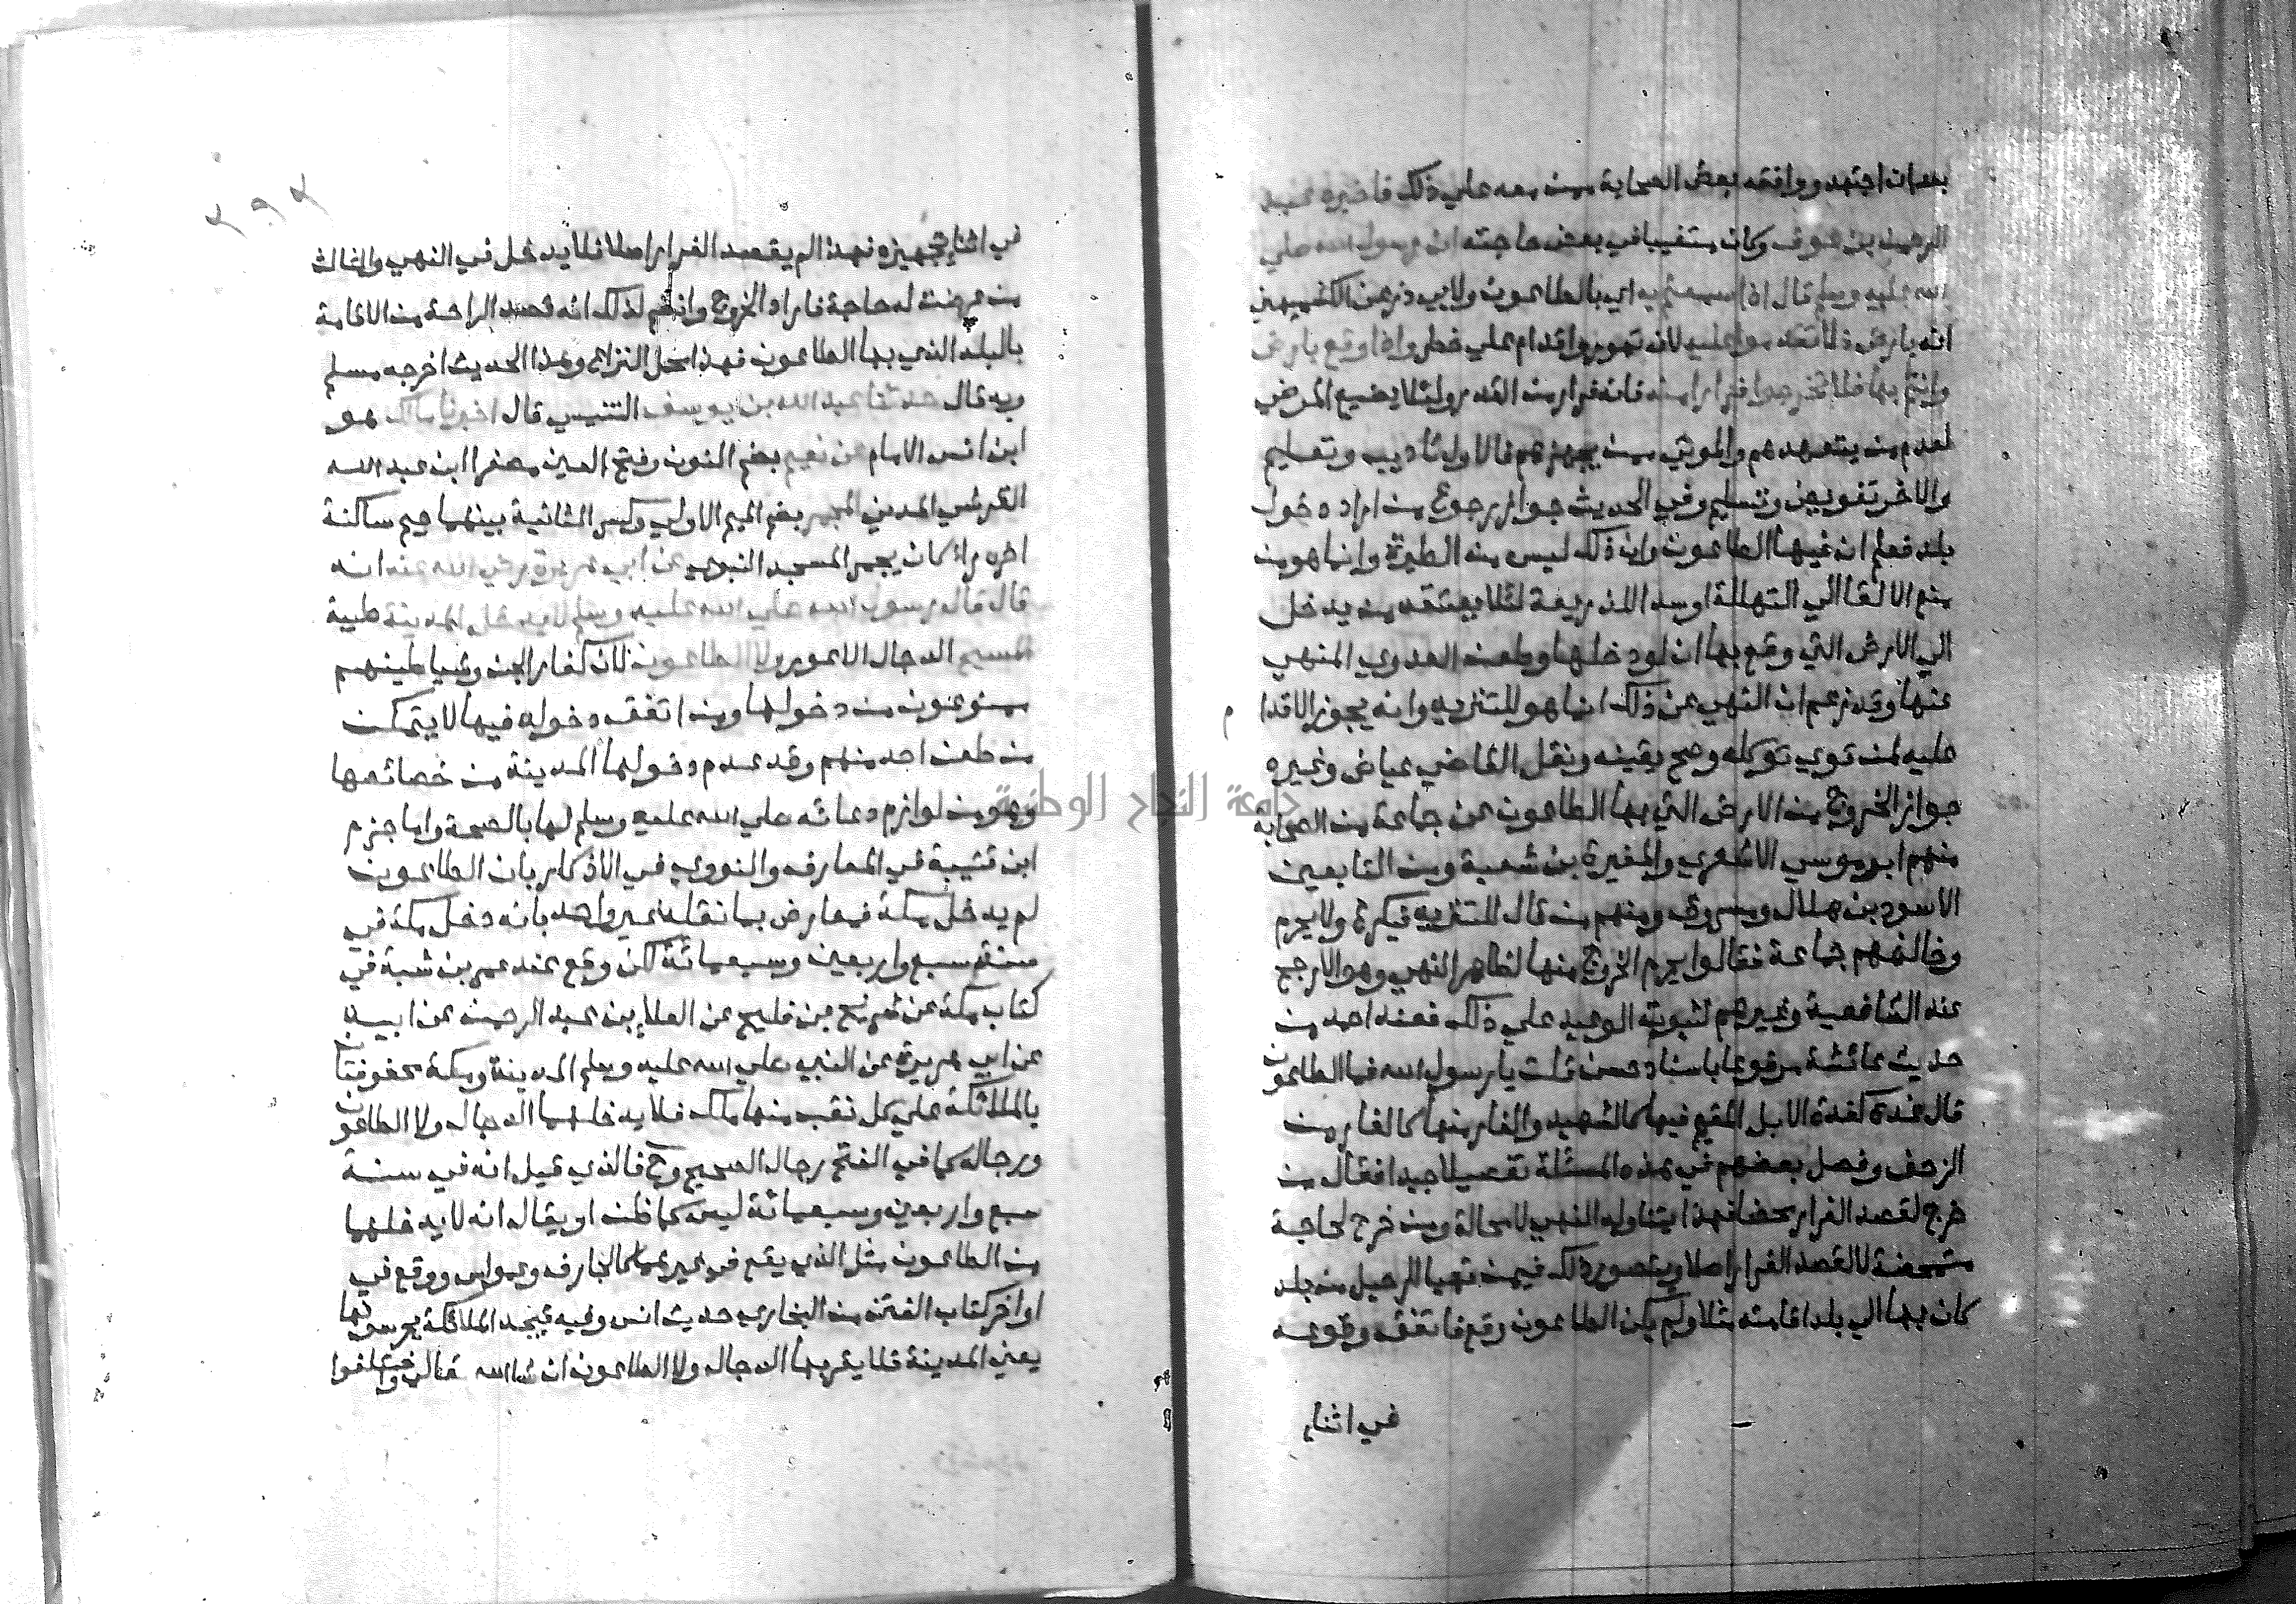 بعد ان اجتهد ووافقه بعض الصحابة ممن معه علي ذلك فاخبره عبد
الرحمن بن عوف وكان متغيبا في بعض حاجته ان رسول الله صلي
الله عليه وسلم قال اذا سمعتم به اي بالطاعون ولابي ذر عن الكشميهني
انه بارض فلا تقدموا عليه لانه تهور واقدام علي خطر واذا وقع بارض
وانتم بها فلا تخرجوا فرارا منه فانه فرار من القدر ولئلا يضيع المرضي
لعدم من يتعهدهم والموتي ممن يجهزهم فالاول تاديب وتعليم
والاخر تفويض وتسليم وفي الحديث جواز رجوع من اراد دخول
بلد فعلم ان فيها الطاعون وان ذلك ليس من الطيرة وانما هو من
منع الالقا الي التهلكة او سد الذريعة لئلا يعتقد من يدخل
الي الارض التي وقع بها ان لو دخلها وطعن العدوي المنهي
عنها وقد زعم ان النهي عن ذلك انما هو للتنزيه وانه يجوز الاقدا م
عليه لمن قوي توكله وصح يقينه ونقل القاضي عياض وغيره
جواز الخروج من الارض التي بها الطاعون عن جماعة من الصحابة
منهم ابو موسي الاشعري والمغيرة بن شعبة ومن التابعين
الاسود بن هلال ومسروق ومنهم من قال للتنزيه فيكره ولا يحرم
وخالفهم جماعة فقالوا يحرم الخروج منها لظاهر النهي وهو الارجح
عند الشافعية وغيرهم لثبوت الوعيد علي ذلك فعند احمد من
حديث عائشة مرفوعا باسناد حسن قلت يا رسول الله فما الطاعون
قال غدة كغدة الابل المقيم فيها كالشهيد والفار منها كالفار من
الزحف وفصل بعضهم في هذه المسئلة تفصيلا جيدا فقال من
خرج لقصد الفرار محضا فهذا يتناوله النهي لا محالة ومن خرج لحاجة
متمحضة لا لقصد الفرار اصلا ويتصور ذلك فيمن تهيا للرحيل من بلد
كان بها الي بلد اقامته مثلا ولم يكن الطاعون وقع فاتفق وقوعه
في اثناء
في اثناء تجهيزه فهذا لم يقصد الفرار اصلا فلا يدخل في النهي والثالث
من عرضت له حاجة فاراد الخروج وانضم لذلك انه قصد الراحة من الاقامة
بالبلد الذي بها الطاعون فهذا محل النزاع وهذا الحديث اخرجه مسلم
وبه قال حدثنا عبد الله بن يوسف التنيسي قال اخبرنا مالك هو
ابن انس الامام عن نعيم بضم النون وفتح العين مصغرا ابن عبد الله
القرشي المدني المجمر بضم الميم الاولي وكسر الثانية بينهما جيم ساكنة
اخره راء كان يجمر المسجد النبوي عن ابي هريرة رضي الله عنه انه
قال قال رسول الله صلي الله عليه وسلم لا يدخل المدينة طيبة
المسيح الدجال الاعور ولا الطاعون لان كفار الجن وشياطينهم
ممنوعون من دخولها ومن اتفق دخوله فيها لا يتمكن
من طعن احد منهم وقد عدم دخولها المدينة من خصائصها
وهو من لوازم دعائه صلي الله عليه وسلم لها بالصحة واما جزم
ابن قتيبة في المعارف والنووي في الاذكار بان الطاعون
لم يدخل مكة فيعارض بما نقله غير واحد بانه دخل مكة في
سنة سبع واربعين وسبعمائة لكن وقع عند عمر بن شبة في
كتاب مكة عن شريح بن فليح عن العلاء بن عبد الرحمن عن ابيه
عن ابي هريرة عن النبي صلي الله عليه وسلم المدينة ومكة محفوفتان
بالملائكة علي كل نقب منها ملك فلا يدخلهما الدجال ولا الطاعون
ورجاله كما في الفتح رجال الصحيح وح فالذي قيل انه في سنة
سبع واربعين وسبعمائة ليس كما ظن او يقال انه لا يدخلهما
من الطاعون مثل الذي يقع في غيرهما كالجارف وعمواس ووقع في
اواخر كتاب الفتن من البخاري حديث انس وفيه فيجد الملائكة يحرسونها
يعني المدينة فلا يقربها الدجال ولا الطاعون ان شا الله قال واختلفوا